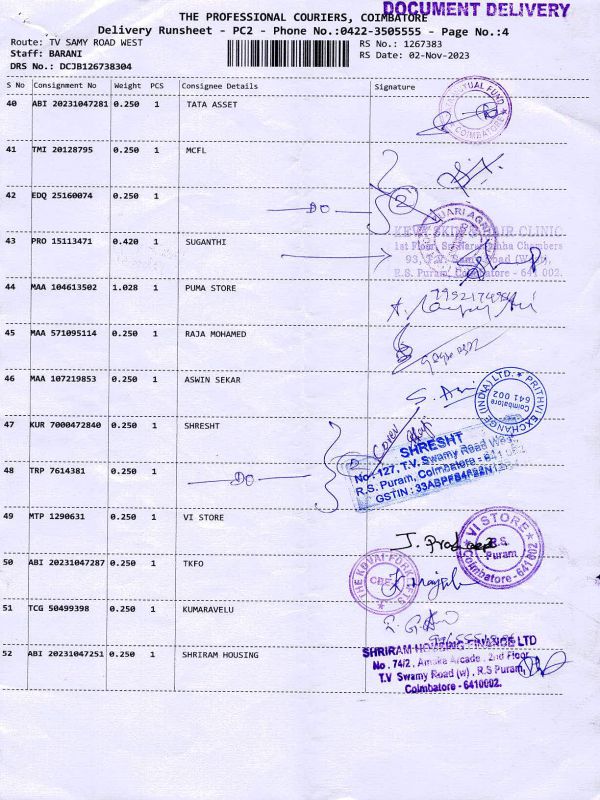 DOCUMENT DELIVERY
THE PROFESSIONAL COURIERS, COIMBATORE
Delivery Runsheet - PC2 - Phone No.:0422-3505555 - Page No.:4
Route: TV SAMY ROAD WEST
Staff: BARANI
DRS No.: DCJB126738304
RS No.: 1267383
RS Date: 02-Nov-2023
S No Consignment No Weight PCS Consignee Details Signature
40 ABI 20231047281 0.250 1 TATA ASSET
MUTUAL FUND COIMBATORE
41 TMI 20128795 0.250 1 MCFL
42 EDQ 25160074 0.250 1 DO 2
43 PRO 15113471 0.420 1 SUGANTHI
SKIN HAIR CLINIC
1st Floor, Chambers
93, T.V. Road
R.S. Puram, Coimbatore - 641 002.
44 MAA 104613502 1.028 1 PUMA STORE
45 MAA 571095114 0.250 1 RAJA MOHAMED
46 MAA 107219853 0.250 1 ASWIN SEKAR
PRITHVI EXCHANGE (INDIA) LTD.
Coimbatore
641 002
47 KUR 7000472840 0.250 1 SHRESHT
SHRESHT
No. 127, T.V. Swamy Road West,
R.S. Puram, Coimbatore - 641 002
GSTIN :
48 TRP 7614381 0.250 1 DO
49 MTP 1290631 0.250 1 VI STORE
VI STORE
R.S. Puram
Coimbatore-641002
50 ABI 20231047287 0.250 1 TKFO
THE KOVAI FORKLIFTS
CBE
51 TCG 50499398 0.250 1 KUMARAVELU
52 ABI 20231047251 0.250 1 SHRIRAM HOUSING
SHRIRAM HOUSING FINANCE LTD
No . 74/2 , Arcade , 2nd Floor
T.V Swamy Road (w) , R.S Puram,
Coimbatore - 6410002.